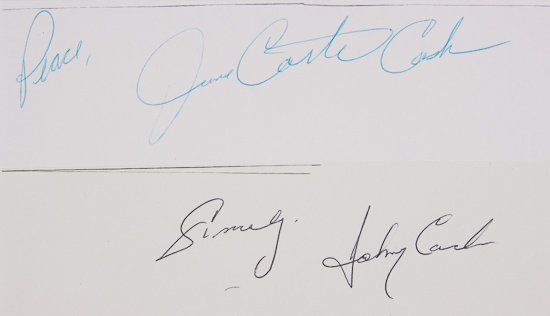 Peace, June Carter Cash
Sincerely, Johnny Cash